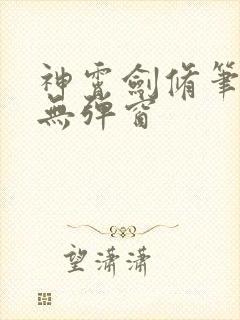 神霄劍脩筆
無彈窗
望瀟瀟